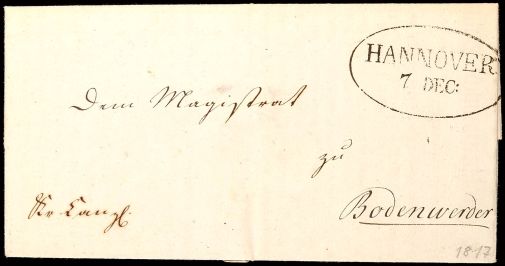 HANNOVER
7 DEC:
Dem Magistrat
zu
Bodenwerder
1817